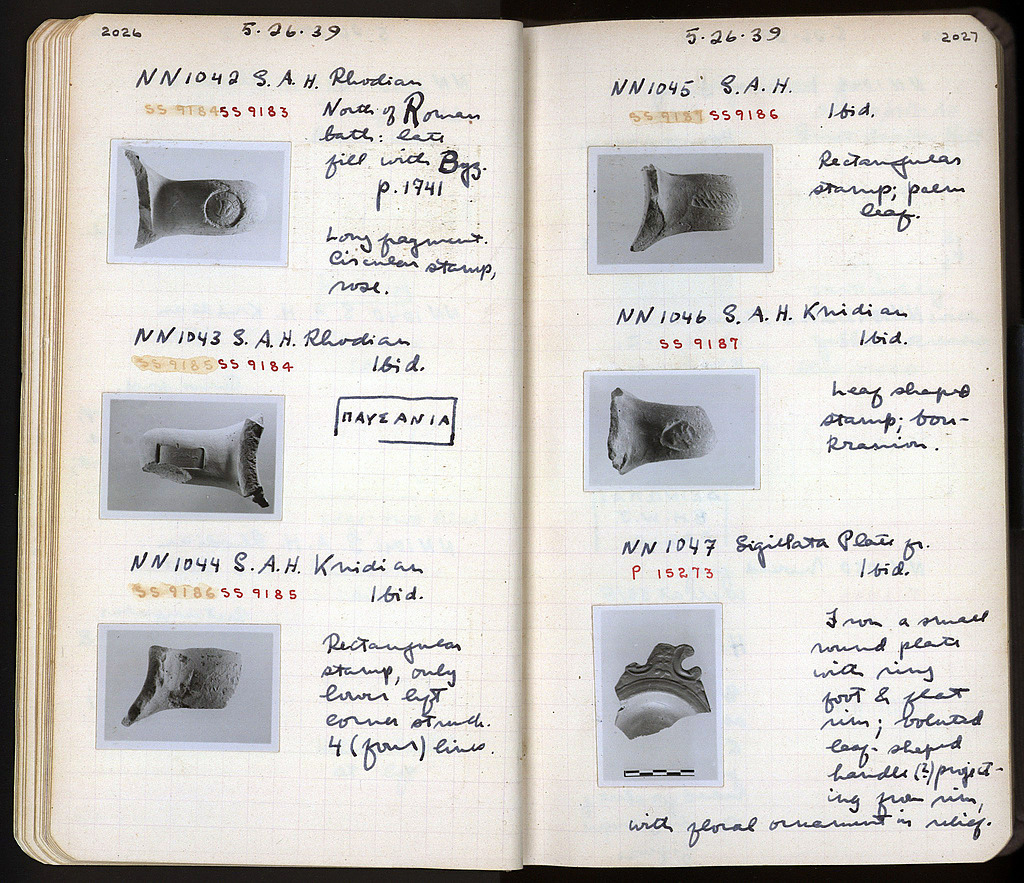 2026
5·26·39
NN1042 S.A.H. Rhodian
SS 9184 SS 9183
North of Roman
bath: late
fill with Byz.
p. 1741
Long fragment.
Circular stamp,
rose.
NN1043 S.A.H. Rhodian
SS 9185 SS 9184
Ibid.
ΠΑΥΣΑΝΙΑ
NN1044 S.A.H. Knidian
SS 9186 SS 9185
Ibid.
Rectangular
stamp, only
lower left
corner struck.
4 (four) lines.
5·26·39
2027
NN1045 S.A.H.
SS 9187 SS 9186
Ibid.
Rectangular
stamp; palm
leaf.
NN1046 S.A.H. Knidian
SS 9187
Ibid.
Leaf shaped
stamp; bou-
kranion.
NN1047 Sigillata Plate fr.
P 15273
Ibid.
From a small
round plate
with ring
foot & flat
rim; voluted
leaf-shaped
handle (?) project-
ing from rim,
with floral ornament in relief.